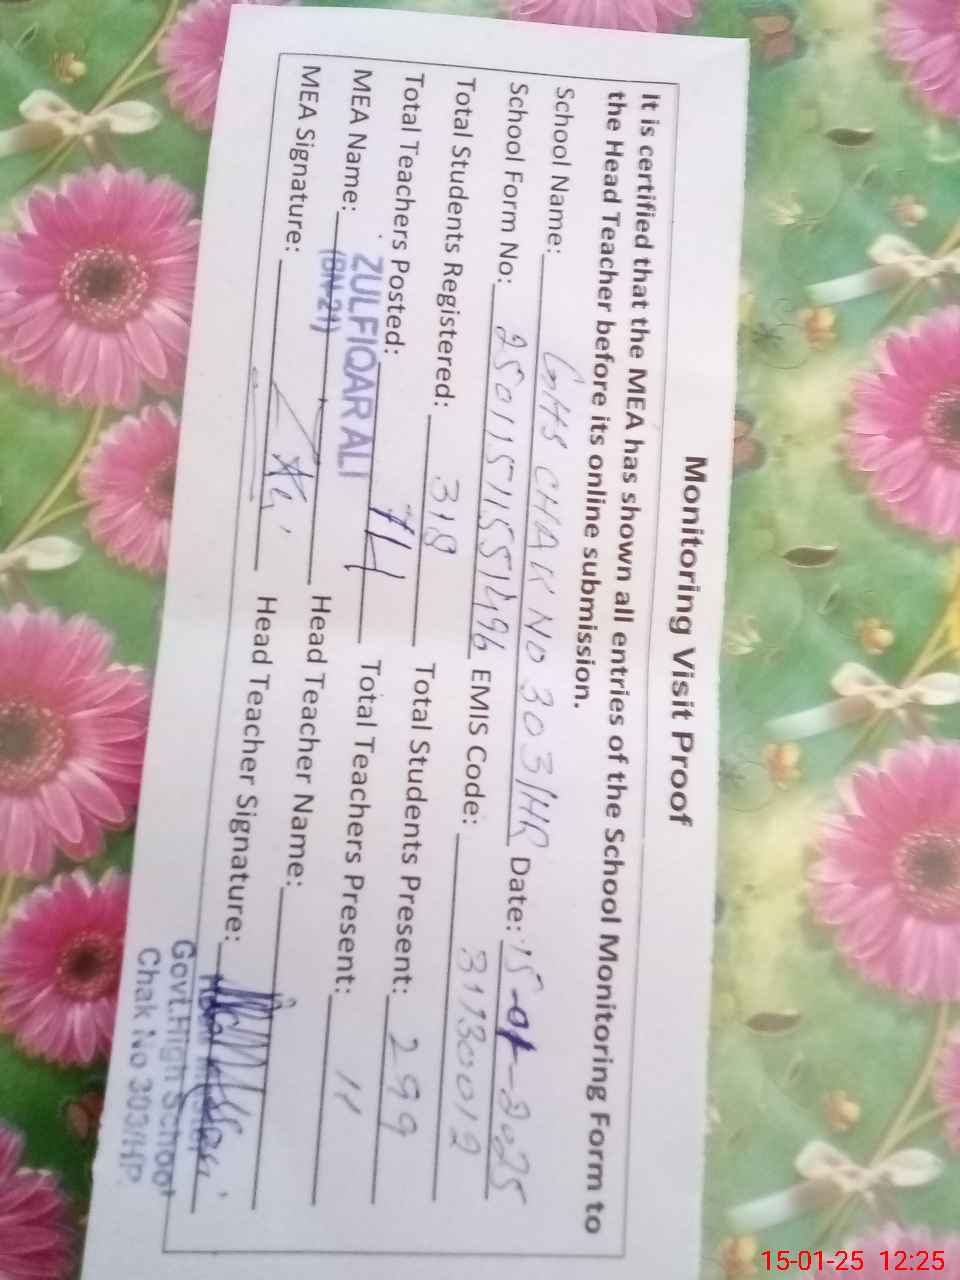 Monitoring Visit Proof
It is certified that the MEA has shown all entries of the School Monitoring Form to
the Head Teacher before its online submission.
School Name: GHS CHAK NO 303/HR Date: 15-01-2025
School Form No: 25011511551496 EMIS Code: 31130012
Total Students Registered: 318 Total Students Present: 299
Total Teachers Posted: 14 Total Teachers Present: 11
MEA Name: ZULFIQAR ALI Head Teacher Name:
(BN-21)
MEA Signature: Head Teacher Signature:
Govt. High School
Chak No 303/HR
15-01-25 12:25